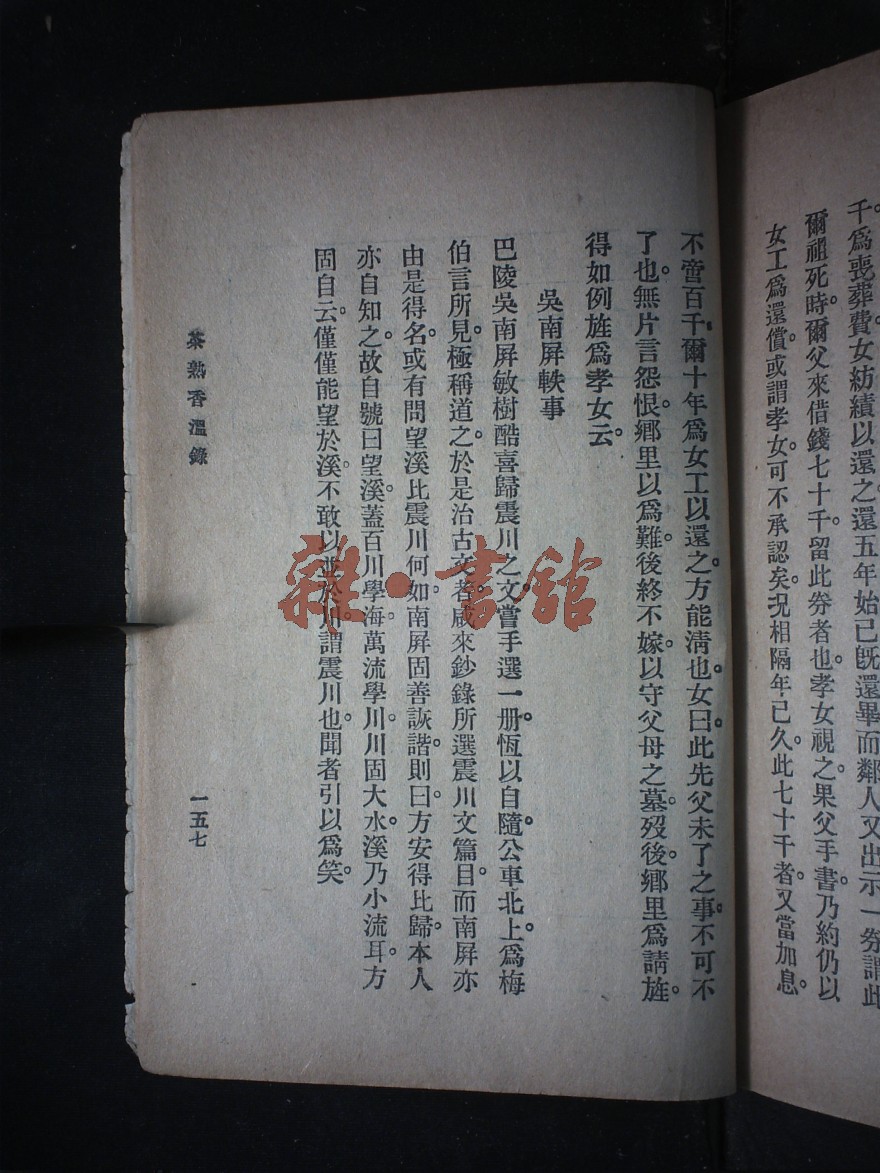 千。爲喪葬費。女紡績以還之。還五年始已。旣還畢。而鄰人又出示一券。謂此
爾祖死時。爾父來借錢七十千。留此券者也。孝女視之。果父手書。乃約仍以
女工爲還償。或謂孝女。可不承認矣。況相隔年已久。此七十千者。又當加息。
不啻百千。爾十年爲女工以還之。方能淸也。女曰。此先父未了之事。不可不
了也。無片言怨恨。鄉里以爲難。後終不嫁。以守父母之墓。歿後。鄉里爲請旌。
得如例旌爲孝女云。
吳南屛軼事
巴陵吳南屛敏樹。酷喜歸震川之文。嘗手選一册。恆以自隨。公車北上。爲梅
伯言所見。極稱道之。於是治古文者。咸來鈔錄所選震川文篇目。而南屛亦
由是得名。或有問望溪比震川何如。南屛固善詼諧。則曰。方安得比歸。本人
亦自知之。故自號曰望溪。蓋百川學海。萬流學川。川固大水。溪乃小流耳。方
固自云。僅僅能望於溪。不敢以並於川。謂震川也。聞者引以爲笑。
茶熟香溫錄
一五七
雜·書館